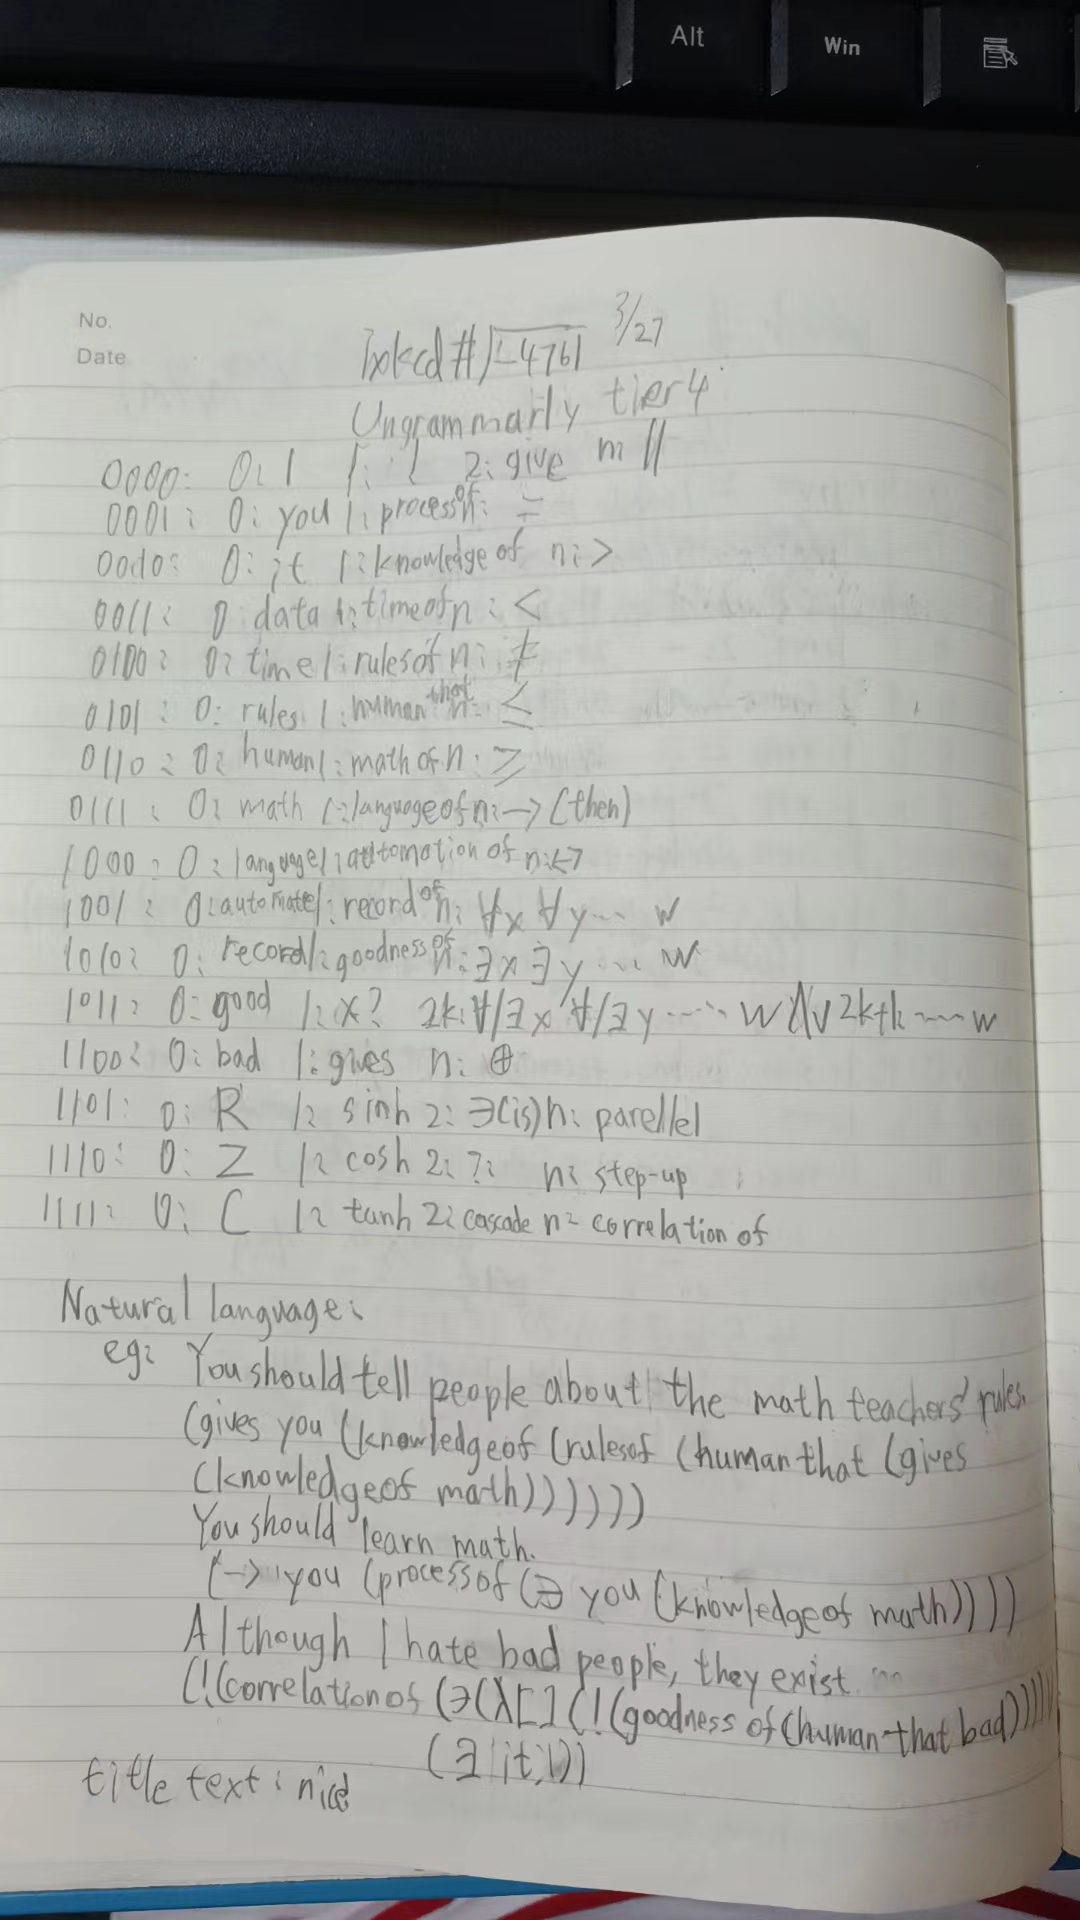 Alt
Win
No.
Date
3/27
xkcd # √-4761
Ungrammarly tier 4
0000: 0: I 1: ! 2: give m ||
0001: 0: you 1: process of n: =
0010: 0: it 1: knowledge of n: >
0011: 0: data 1: time of n: <
0100: 0: time 1: rules of n: ≠
0101: 0: rules 1: human that n: ≤
0110: 0: human 1: math of n: ≥
0111: 0: math 1: language of n: → (then)
1000: 0: language 1: automation of n: ↔
1001: 0: automate 1: record of n: ∀x ∀y ... w
1010: 0: record 1: goodness of n: ∃x ∃y ... w
1011: 0: good 1: x? 2k: ∀/∃x ∀/∃y ...... w ∧/∨ 2k+1: ...... w
1100: 0: bad 1: gives n: ⊕
1101: 0: R 1: sinh 2: ∃(is) n: parellel
1110: 0: Z 1: cosh 2: ?: n: step-up
1111: 0: C 1: tanh 2: cascade n: correlation of
Natural language:
eg: You should tell people about the math teachers' rules.
(gives you (knowledgeof (rulesof (human that (gives
(knowledgeof math))))))
You should learn math.
(→ you (processof (∃ you (knowledgeof math))))
Although I hate bad people, they exist
(!(correlationof (∃(λ[] (!(goodness of (human that bad)))))
(∃ it))
title text: nice